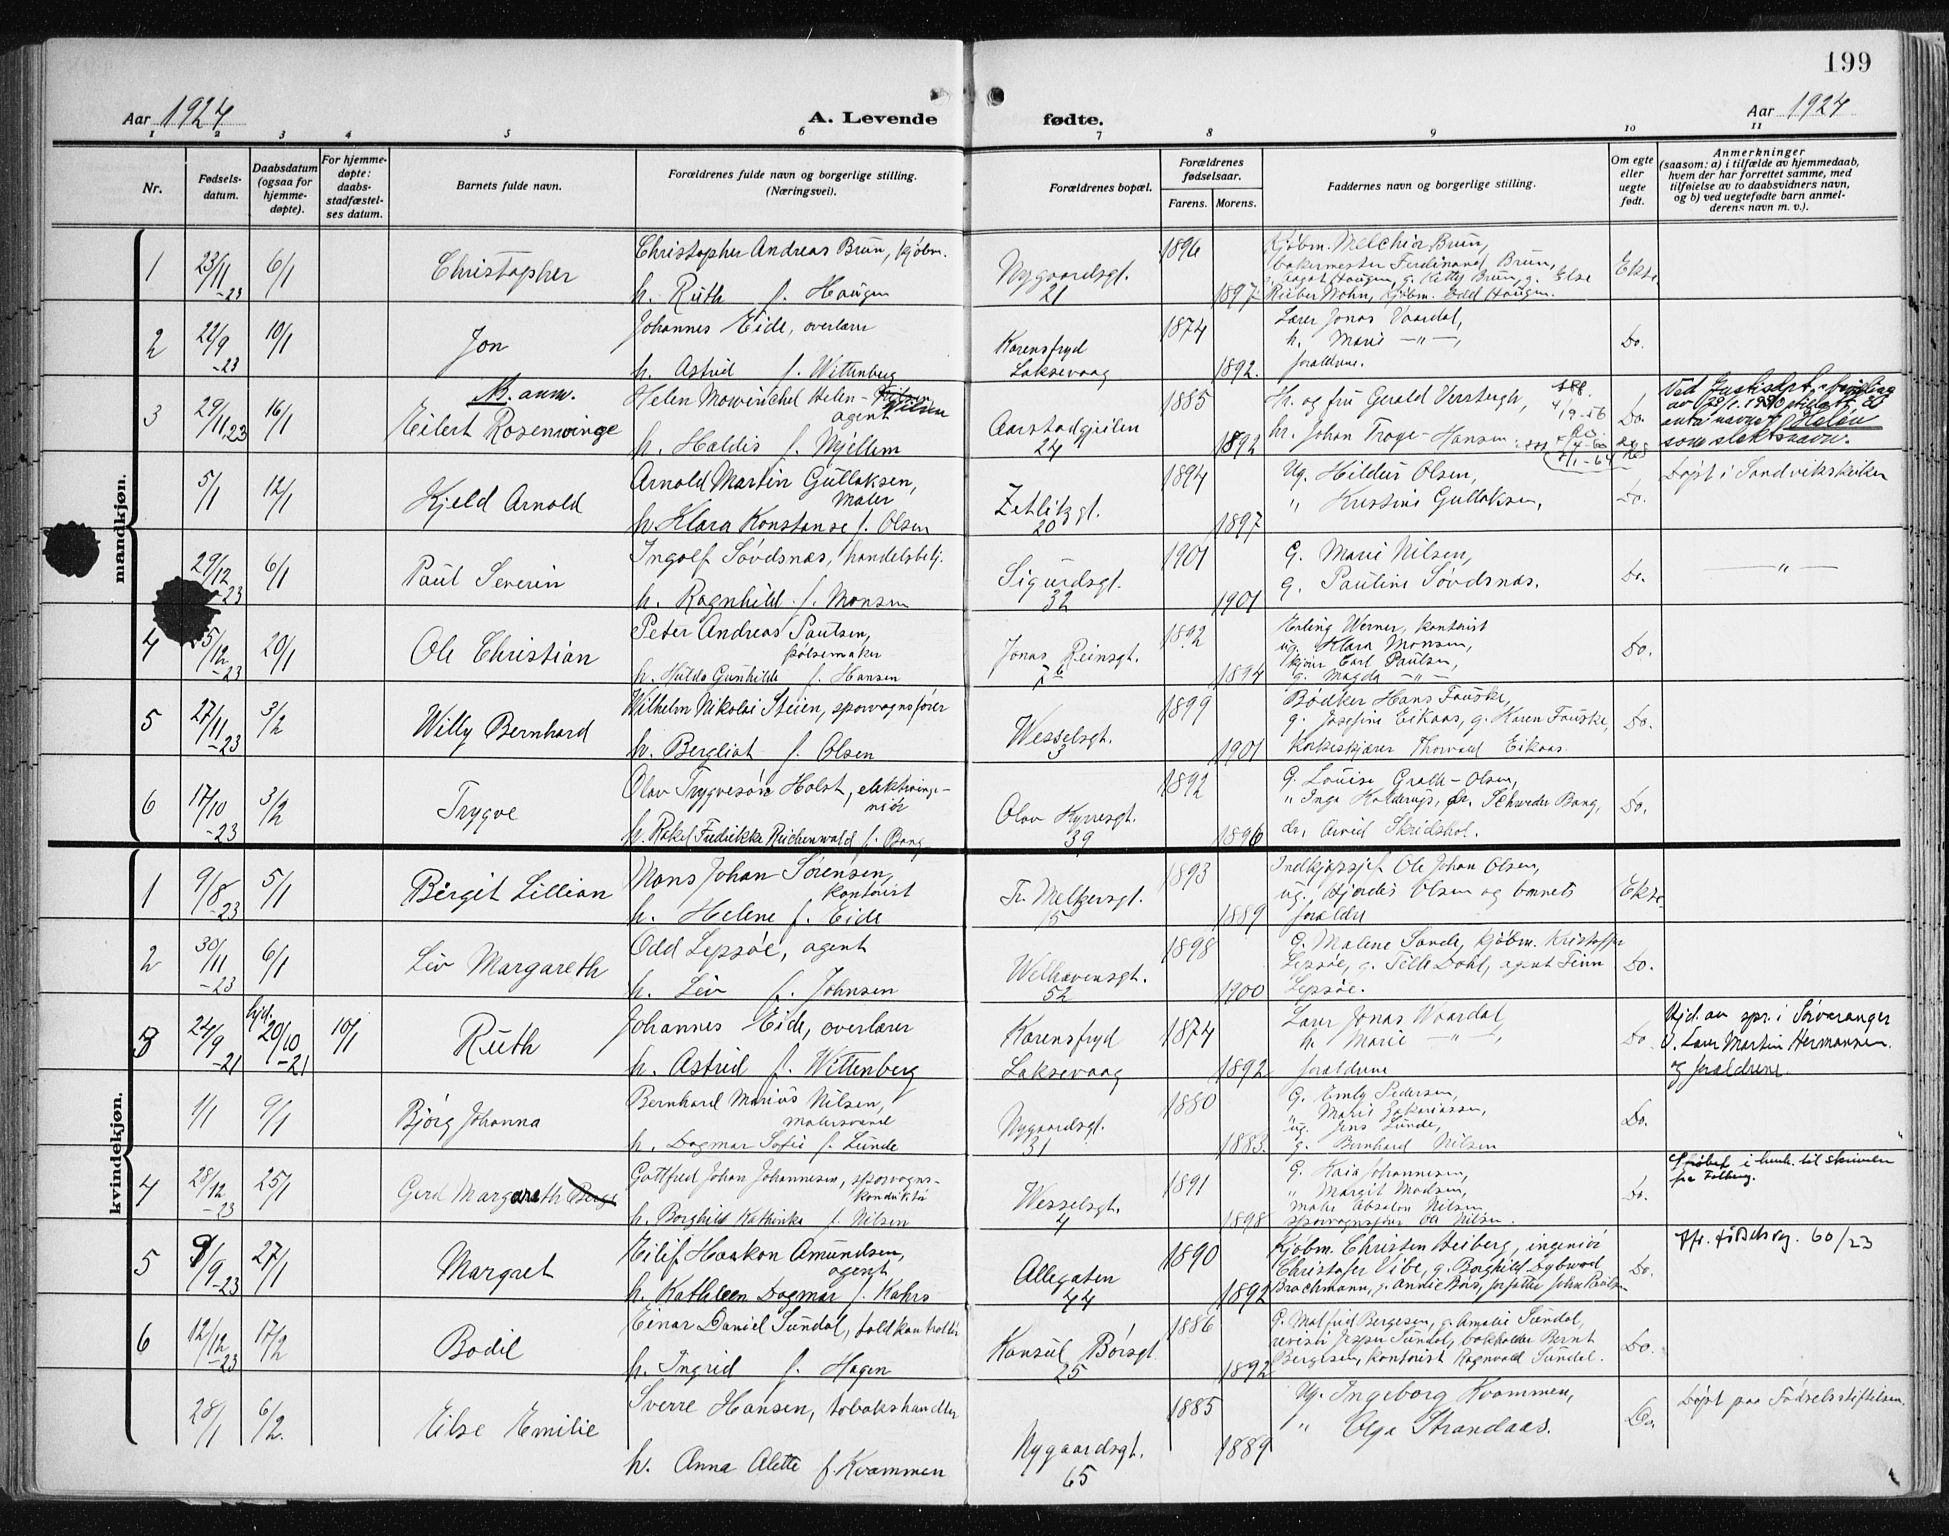 199
Aar 1924
A. Levende
fødte.
Aar 1924
1 2 3 4 5 6 7 8 9 10 11
Nr.
Fødsels-
datum.
Daabsdatum
(ogsaa for
hjemme-
døpte).
For hjemme-
døpte:
daabs-
stadfæstel-
ses datum.
Barnets fulde navn.
Forældrenes fulde navn og borgerlige stilling.
(Næringsvei).
Forældrenes bopæl.
Forældrenes
fødselsaar.
Farens. Morens.
Faddernes navn og borgerlige stilling.
Om egte
eller
uegte
født.
Anmerkninger
(saasom: a) i tilfælde av hjemmedaab,
hvem der har forrettet samme, med
tilføielse av to daabsvidners navn,
og b) ved uegtefødte barn anmel-
derens navn m. v.).
mandkjøn.
1 23/11 -23 6/1 Christopher
Christopher Andreas Brun, kjøbm.
h. Ruth f. Haugen
Nygaardsgt. 21
1896 1897
Kjøbm. Melchior Brun,
bakermester Ferdinand Brun,
Haugen, g. Kitty Brun, g. Else
Rieber Mohn, kjøbm. Odd Haugen.
Ekte
2 22/9 -23 10/1 Jon
Johannes Eide, overlærer
h. Astrid f. Wittenberg
Karensfryd
Laksevaag
1874 1892.
Lærer Jonas Vaardal,
h. Marie —"—,
forældrene.
Do.
3 29/11 23 16/1 NB. anm.
Eilert Rosenwinge
Helen Mowinchel Helen-Nilsen
agent
h. Haldis f. Myellem
Aarstadgjeilen
24
1885 1892
Hr. og fru Gerald Verstegh,
hr. Johan Trage-Hansen
4/9-56
Do.
Ved Justisdept. bevilling
som slektsnavn.
5/1 12/1 Kjeld Arnold
Arnold Martin Gullaksen,
maler
h. Klara Konstanse f. Olsen
Zetlitzgt.
20
1894 1897
Ug. Hildur Olsen,
" Kristine Gullaksen,
Do.
Døpt i Sandvikskirken
29/12 -23 6/1 Paul Severin
Ingolf Søvdsnæs, handelsbetj.
h. Ragnhild f. Monsen
Sigurdsgt.
32
1901 1901
G. Marie Nilsen,
g. Pauline Søvdsnæs.
Do.
—"—
4 25/12 -23 20/1 Ole Christian
Peter Andreas Paulsen,
pølsemaker
h. Hulda Gunhilde f. Hansen
Jonas Reinsgt.
1892 1894
Erling Werner, kontorist
ug. Klara Monsen,
Carl Paulsen,
g. Magda —"—
Do.
5 27/11 -23 3/2 Willy Bernhard
Wilhelm Nikolai Steien, sporvognsfører
h. Bergliot f. Olsen
Wesselsgt.
3
1899 1901
Bødker Hans Fauske,
g. Josefine Eikaas, g. Karen Fauske,
Korkeskjærer Thorvald Eikaas.
Do.
6 17/10 -23 3/2 Trygve
Olav Trygvesøn Holst, elektroinge-
niør
h. Rakel Fredrikke Reichenwald f. Bang
Olav Kyrresgt.
39
1892 1896
G. Louise Grath-Olsen,
" Inga Kolderup, fr. Schweder Bang,
dr. Arvid Skridshol.
Do.
kvindekjøn.
1 9/8 -23 5/1 Birgit Lillian
Mons Johan Sørensen,
kontorist
h. Helene f. Eide
Fr. Meltzersgt.
15
1893 1889
Indkjøpssjef Ole Johan Olsen,
ug. Hjørdis Olsen og barnets
forældre
Ekte.
2 30/11 -23 6/1 Liv Margareth
Odd Lepsøe, agent
h. Liv f. Johnsen
Welhavensgt.
52
1898 1900
G. Malene Sande, kjøbm. Kristoffer
Lepsøe, g. Tille Dahl, agent Finn
Lepsøe.
Do.
3 24/9 -21 hjd. 20/10 -21 10/1 Ruth
Johannes Eide, overlærer
h. Astrid f. Wittenberg
Karensfryd
Laksevaag
1874 1892
Lærer Jonas Waardal,
h. Marie —"—,
forældrene
Do.
Hjd. av spr. i Sørvaranger
V. Lærer Martin Hermansen
og forældrene.
1/1 9/1 Bjørg Johanna
Bernhard Marius Nilsen,
malersvend
h. Dagmar Sofie f. Lunde
Nygaardsgt.
31
1880 1883.
G. Emly Pedersen,
" Marie Zakariassen,
ug. Jens Lunde,
g. Bernhard Nilsen
Do.
4 28/12 -23 25/1 Gerd Margareth Berge
Gottfred Johan Johannesen, sporvogns-
konduktør
h. Borghild Kathinka f. Nilsen
Wesselsgt.
4
1891 1898
G. Kaia Johannesen,
" Margit Madsen,
maler Absalon Nilsen
sporvognsfører Ole Nilsen.
Do.
Strøket i henh. til skrivelse
fra
5 9/9 -23 27/1 Margret
Eilif Haakon Amundsen,
agent
h. Kathleen Dagmar f. Kahrs
Allegaten
44
1890 1892
Kjøbm. Christen Heiberg, ingeniør
Christofer Vibe, g. Borghild Dybwad
Brochmann, g. Annie Børs,
Do.
Jfr. fødselsreg. 60/23
6 12/12 -23 17/2 Bodil
Einar Daniel Sundal, toldkontrollør
h. Ingrid f. Hagen
Konsul Børsgt.
25
1886 1892
G. Malfrid Bergesen, g. Amalie Sundal,
revisor Jesper Sundal, bokholder Bernt
Bergesen, kontorist Ragnvald Sundal.
Do.
28/1 6/2. Else Emilie
Sverre Hansen, tobakshandler
h. Anna Alette f. Kvammen
Nygaardsgt.
65
1885 1889
Ug. Ingeborg Kvammen,
" Olga Strandaas.
Do.
Døpt paa Fødselsstiftelsen.